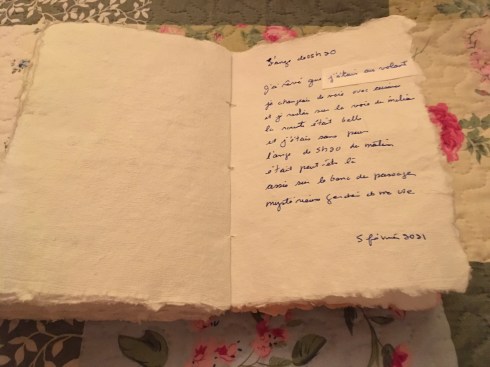 L'ange de 5h20
J'ai rêvé que j'étais au volant
je changeais de voie avec
et je restais sur la voie de
la route était belle
et j'étais sans peur
l'ange de 5h20 du matin
était peut-être là
assis sur le banc de passager
mystérieux gardien de ma vie
5 février 2021